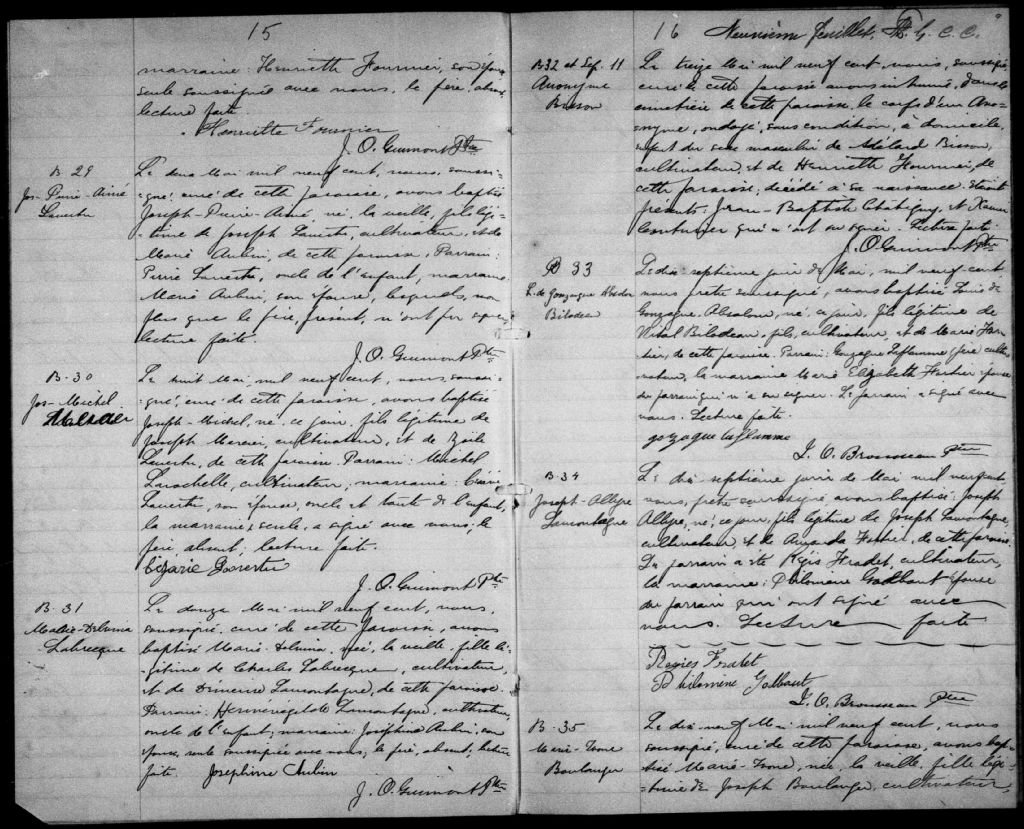 15
marraine: Henriette Fournier, son épouse
seule soussignée avec nous, le père, absent
lecture faite.
Henriette Fournier
J. O. Guimont Ptre
B-29
Jos-Pierre-Aimé
Le deux Mai mil neuf cent, nous, soussi-
gné, curé de cette paroisse, avons baptisé
Joseph-Pierre-Aimé, né, la veille, fils légi-
time de Joseph cultivateur, et de
Marie Aubin, de cette paroisse. Parrain:
Pierre oncle de l'enfant, marraine
Marie Aubin, son épouse, lesquels, non
plus que le père, présent, n'ont pu signer
lecture faite.
J. O. Guimont Ptre
B-30
Jos-Michel
Mercier
Le huit Mai, mil neuf cent, nous, soussi-
gné, curé de cette paroisse, avons baptisé
Joseph-Michel, né, ce jour, fils légitime de
Joseph Mercier, cultivateur, et de Zoïle
de cette paroisse. Parrain: Michel
Larochelle, cultivateur; marraine:
son épouse, oncle et tante de l'enfant,
la marraine, seule, a signé avec nous; le
père, absent; lecture faite.
J. O. Guimont Ptre
B-31
Marie-Delvina
Labrecque
Le douze Mai mil neuf cent, nous,
soussigné, curé de cette paroisse, avons
baptisé Marie-Delvina, née, la veille, fille lé-
gitime de Charles Labrecque, cultivateur,
et de Lamontagne, de cette paroisse.
Parrain: Herménégilde Lamontagne, cultivateur,
oncle de l'enfant; marraine: Joséphine Aubin, son
épouse, seule soussignée avec nous; le père, absent, lecture
faite. Josephine Aubin
J. O. Guimont Ptre
16 Neuvième feuillet, G. C. C.
B32 et Sép. 11
Anonyme
Bisson
Le treize Mai mil neuf cent, nous, soussigné
curé de cette paroisse avons inhumé, dans le
cimetière de cette paroisse, le corps d'un Ano-
nyme, ondoyé, sous condition, à domicile,
enfant du sexe masculin de Adélard Bisson,
cultivateur, et de Henriette Fournier, de
cette paroisse, décédé à sa naissance. Etaient
présents: Jean-Baptiste et Xavier
Couturier qui n'ont su signer. Lecture faite.
J. O. Guimont Ptre
B 33
L. de Gonzague
Bilodeau
Le dix-septième jour de Mai, mil neuf cent
nous prêtre soussigné, avons baptisé Louis de
Gonzague né, ce jour, fils légitime de
Vital Bilodeau, fils, cultivateur, et de Marie
de cette paroisse. Parrain: Gonzague Laflamme, cultiva-
teur, la marraine Marie Elizabeth épouse
du parrain qui n'a su signer. Le parrain a signé avec
nous. Lecture faite.
gozague laflamme
J. O. Brousseau Ptre
B-34
Joseph-Allyre
Lamontagne
Le dix septième jour de Mai mil neuf cent,
nous, prêtre soussigné avons baptisé, Joseph
Allyre, né, ce jour, fils légitime de Joseph Lamontagne,
cultivateur, et de Amanda de cette paroisse
Le parrain a été Régis Fradet, cultivateur,
la marraine: Philomène Galbaut épouse
du parrain qui ont signé avec
nous. Lecture faite
Regies Fratet
Philomène Galbaut
J. O. Brousseau Ptre
B-35
Marie-
Boulanger
Le dix-neuf Mai mil neuf cent, nous
soussigné, curé de cette paroisse, avons bap-
tisé Marie- née, la veille, fille légi-
time de Joseph Boulanger, cultivateur,